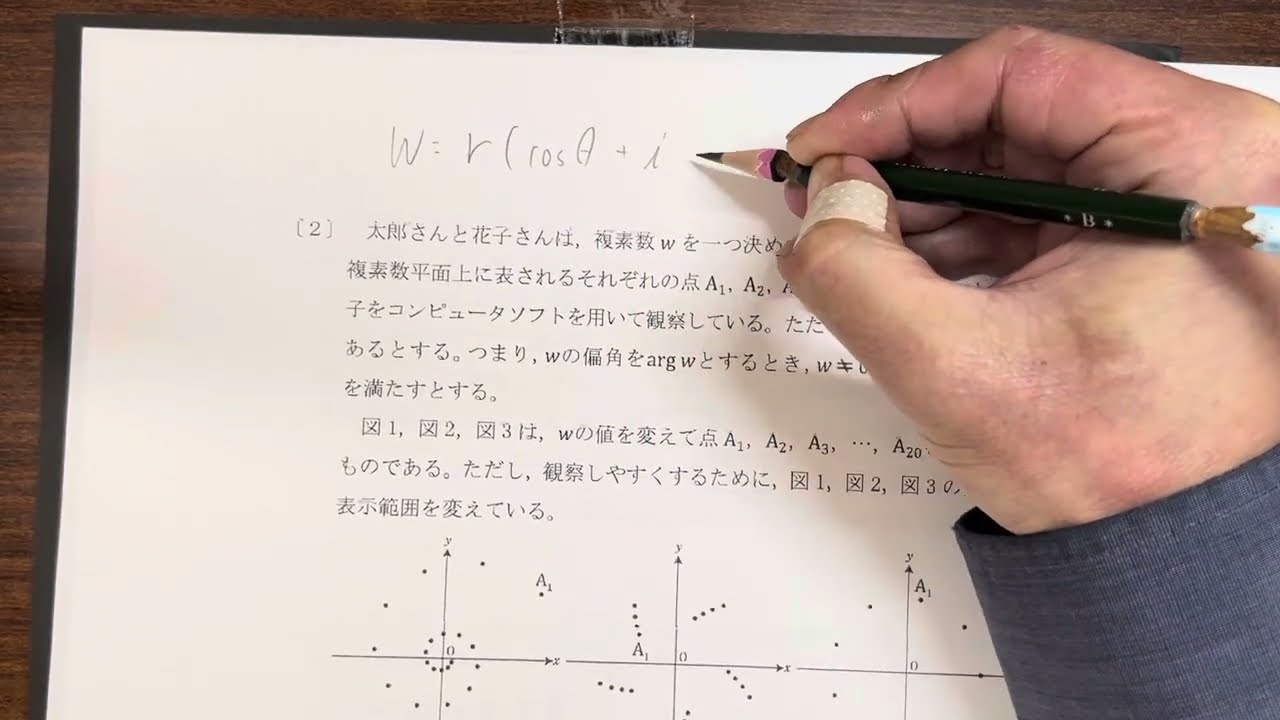 w = r(cosθ + i
*B*
〔2〕 太郎さんと花子さんは，複素数wを一つ決め
複素数平面上に表されるそれぞれの点A₁，A₂，
子をコンピュータソフトを用いて観察している。ただ
あるとする。つまり，wの偏角をarg wとするとき，w≠0
を満たすとする。
図1，図2，図3は，wの値を変えて点A₁，A₂，A₃，…，A₂₀
ものである。ただし，観察しやすくするために，図1，図2，図3の
表示範囲を変えている。
y y y
A₁ A₁ A₁
O x O x O